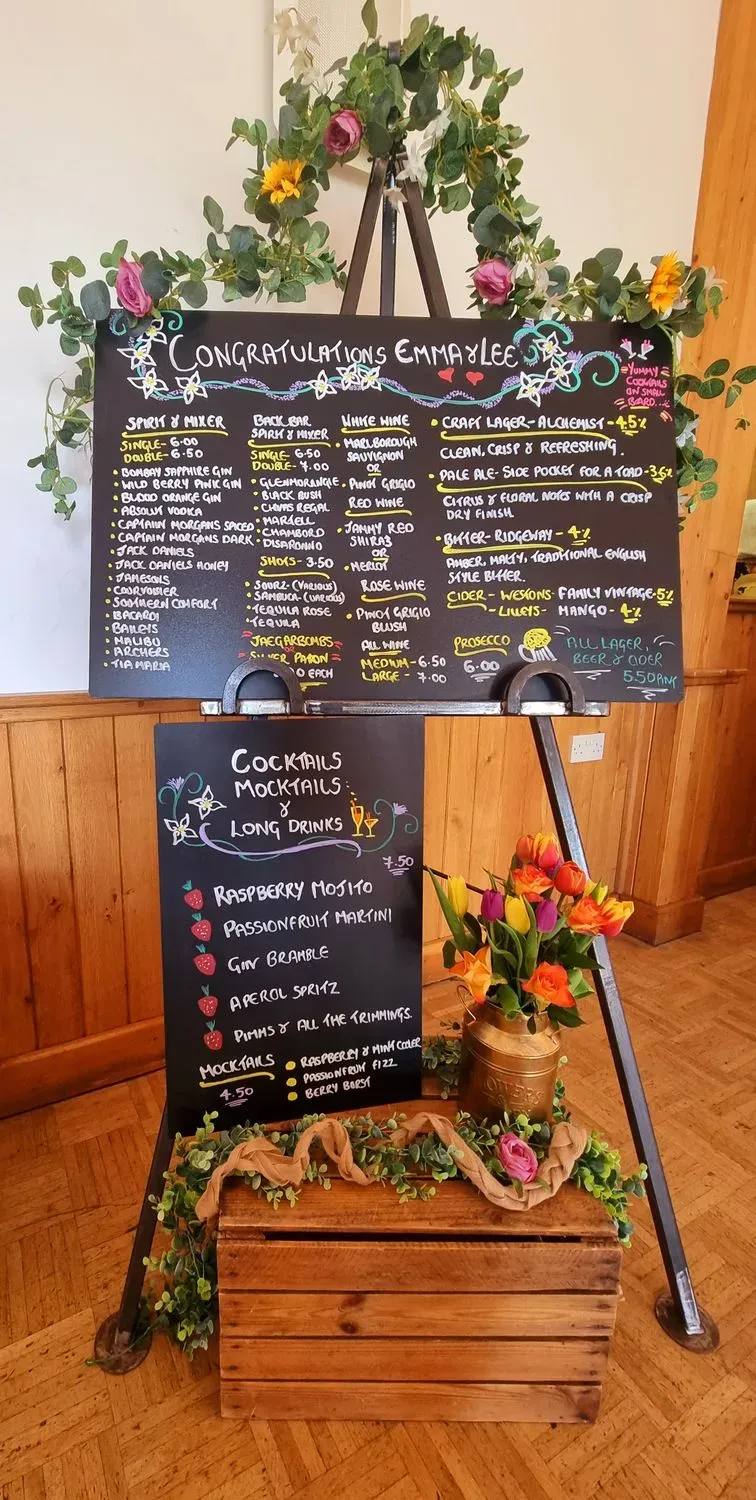 CONGRATULATIONS EMMA & LEE
YUMMY
COCKTAILS
ON SMALL
BOARD.
SPIRIT & MIXER
SINGLE- 6.00
DOUBLE- 6.50
BOMBAY SAPPHIRE GIN
WILD BERRY PINK GIN
BLOOD ORANGE GIN
ABSOLUT VODKA
CAPTAIN MORGANS SPICED
CAPTAIN MORGANS DARK
JACK DANIELS
JACK DANIELS HONEY
JAMESONS
COURVOISIER
SOUTHERN COMFORT
BACARDI
BAILEYS
MALIBU
ARCHERS
TIA MARIA
BACK BAR
SPIRIT & MIXER
SINGLE- 6.50
DOUBLE- 7.00
GLENMORANGIE
BLACK BUSH
CHIVAS REGAL
MARTELL
CHAMBORD
DISARONNO
SHOTS- 3.50
SOURZ- (VARIOUS)
SAMBUCA- (VARIOUS)
TEQUILA ROSE
TEQUILA
JAEGARBOMBS
OR
EACH
WHITE WINE
MARLBOROUGH
SAUVIGNON
OR
PINOT GRIGIO
RED WINE
JAMMY RED
SHIRAZ
OR
MERLOT
ROSE WINE
PINOT GRIGIO
BLUSH
ALL WINE
MEDIUM- 6.50
LARGE - 7.00
CRAFT LAGER- ALCHEMIST - 4.5%
CLEAN, CRISP & REFRESHING.
PALE ALE- SIDE POCKET FOR A TOAD- 3.6%
CITRUS & FLORAL NOTES WITH A CRISP
DRY FINISH.
BITTER- RIDGEWAY - 4%
AMBER, MALTY, TRADITIONAL ENGLISH
STYLE BITTER.
CIDER - WESTONS- FAMILY VINTAGE- 5%
- LILLEYS- MANGO - 4%
PROSECCO
6.00
ALL LAGER,
BEER & CIDER
5.50 PINT
COCKTAILS
MOCKTAILS
&
LONG DRINKS
7.50
RASPBERRY MOJITO
PASSIONFRUIT MARTINI
GIN BRAMBLE
APEROL SPRITZ
PIMMS & ALL THE TRIMMINGS.
MOCKTAILS
4.50
RASPBERRY & MINT COOLER
PASSIONFRUIT FIZZ
BERRY BURST